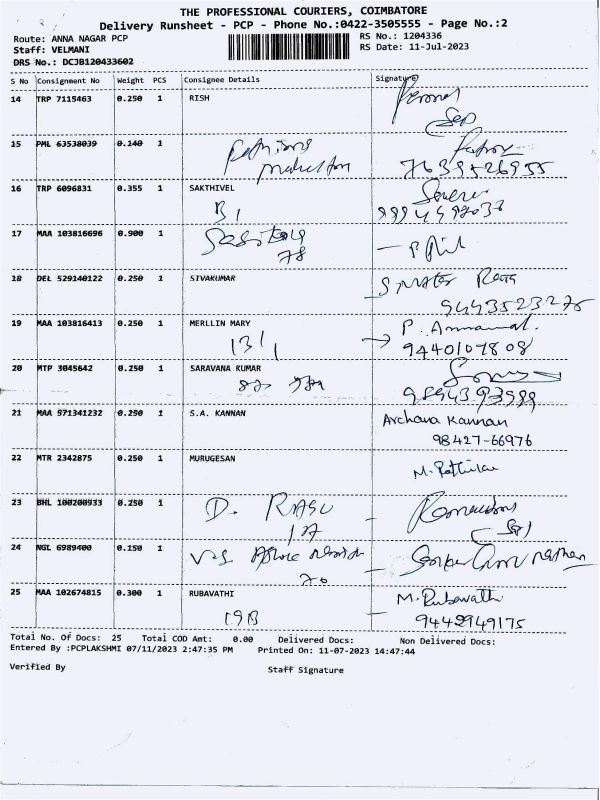 THE PROFESSIONAL COURIERS, COIMBATORE
Delivery Runsheet - PCP - Phone No.:0422-3505555 - Page No.:2
Route: ANNA NAGAR PCP
RS No.: 1204336
Staff: VELMANI
RS Date: 11-Jul-2023
DRS No.: DCJB120433602
S No Consignment No Weight PCS Consignee Details Signature
14 TRP 7115463 0.250 1 RISH
15 PML 63538039 0.140 1
7639526955
16 TRP 6096831 0.355 1 SAKTHIVEL
B1
17 MAA 103816696 0.900 1
78
18 DEL 529140122 0.250 1 SIVAKUMAR
9443523275
19 MAA 103816413 0.250 1 MERLLIN MARY P. Ammamal.
13/1 9440107808
20 MTP 3045642 0.250 1 SARAVANA KUMAR
21 MAA 571341232 0.250 1 S.A. KANNAN Archana Kannan
98427-66976
22 MTR 2342875 0.250 1 MURUGESAN
23 BHL 100200933 0.250 1 D. RAJU
17
24 NGL 6989400 0.150 1
70
25 MAA 102674815 0.300 1 RUBAVATHI M. Rubavathi
19B 9442949175
Total No. Of Docs: 25 Total COD Amt: 0.00 Delivered Docs: Non Delivered Docs:
Entered By :PCPLAKSHMI 07/11/2023 2:47:35 PM Printed On: 11-07-2023 14:47:44
Verified By Staff Signature